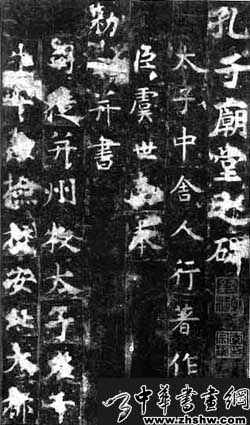 孔子廟堂之碑
太子中舍人行著作
臣虞世南奉
勑并書
司徒并州牧太子左千
牛率兼檢校安北大都
中華書畫網
www.zhshw.com